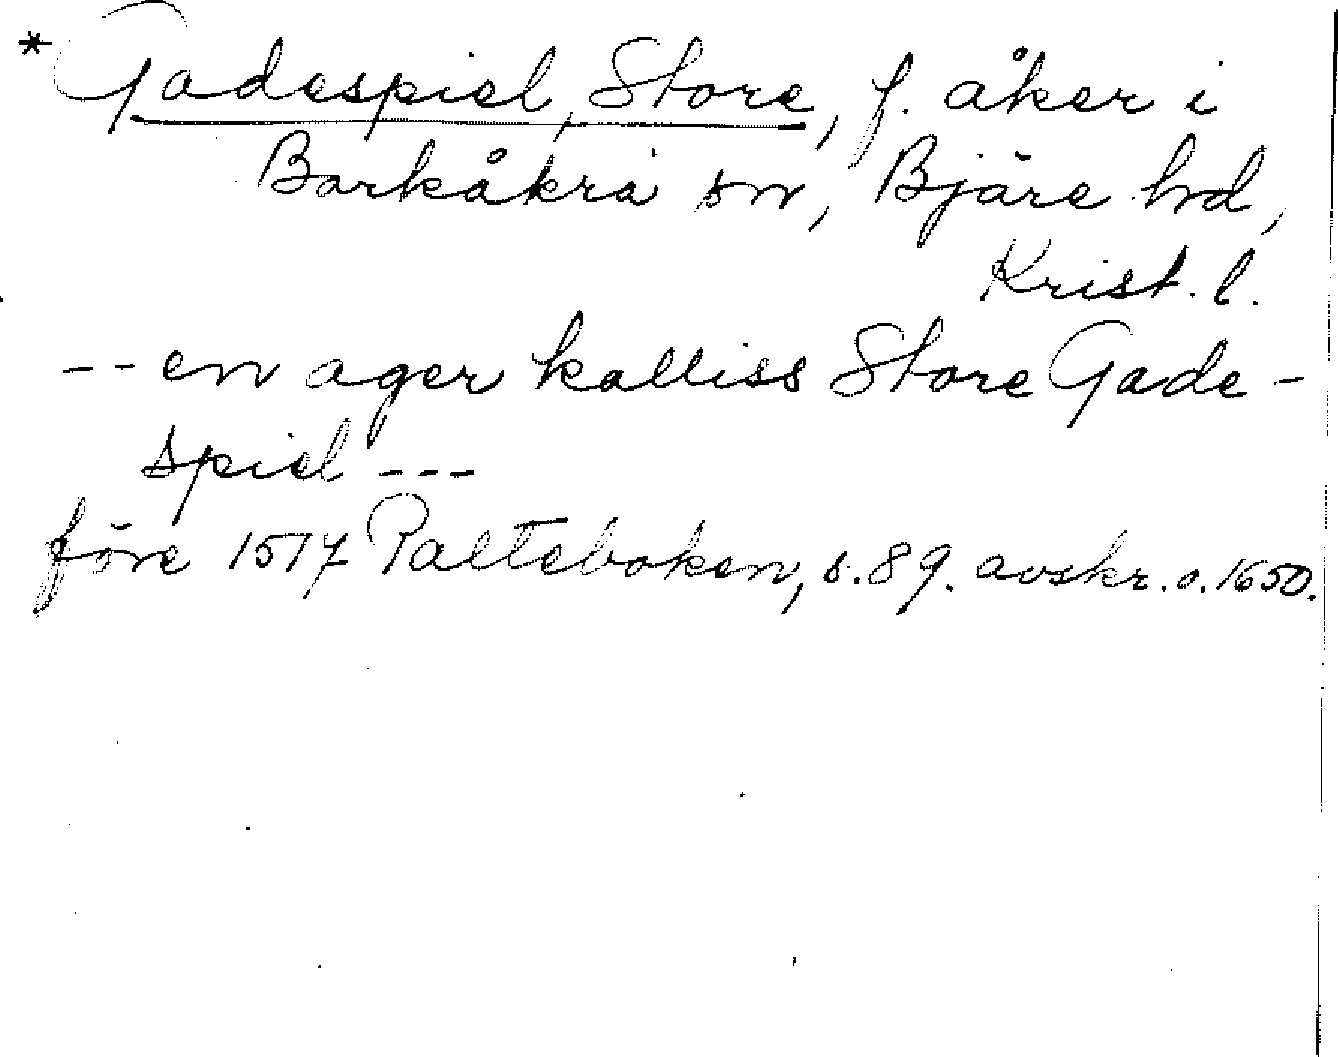 *Gadespiel, Store, f. åker i
Barkåkra sn, Bjäre hd,
Krist. l.
-- en ager kalliss Store Gade-
spiel ---
före 1517 Palteboken, s. 89. avskr. o. 1650.